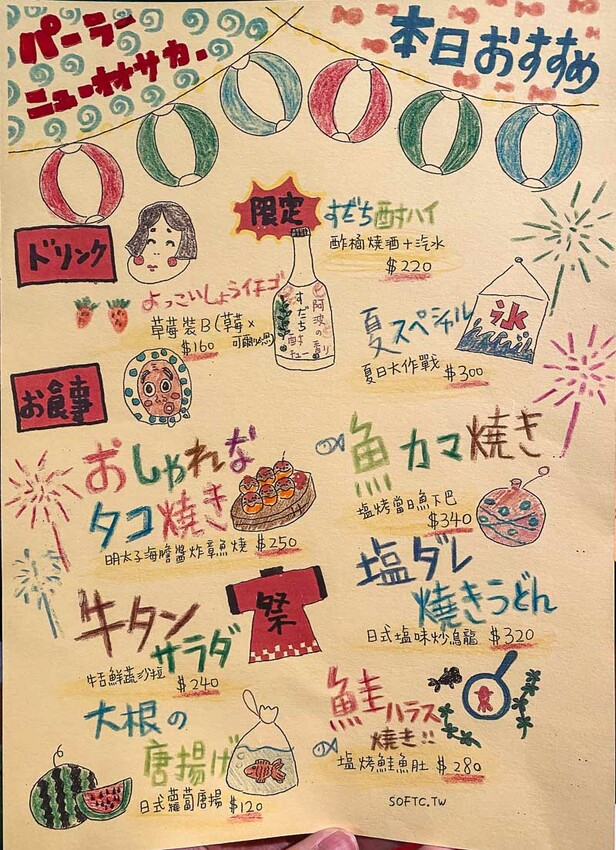 パーラー
ニューオオサカ.
本日おすすめ
ドリンク
限定
すだち酎ハイ
酢橘燒酒+汽水
$220
よっこいしょうイチゴ
草莓裝B(草莓×
可爾必思)
$160
阿波の香り
すだち酎
チュー
夏スペシャル
夏日大作戰 $300
氷
お食事
おしゃれな
タコ焼き
明太子海膽醬炸章魚燒 $250
魚カマ焼き
塩烤當日魚下巴
$340
牛タン
サラダ
牛舌鮮蔬沙拉
$240
祭
塩ダレ
焼きうどん
日式塩味炒烏龍 $320
大根の
唐揚げ
日式蘿蔔唐揚 $120
鮭ハラス
焼き!!
塩烤鮭魚肚 $280
SOFTC.TW